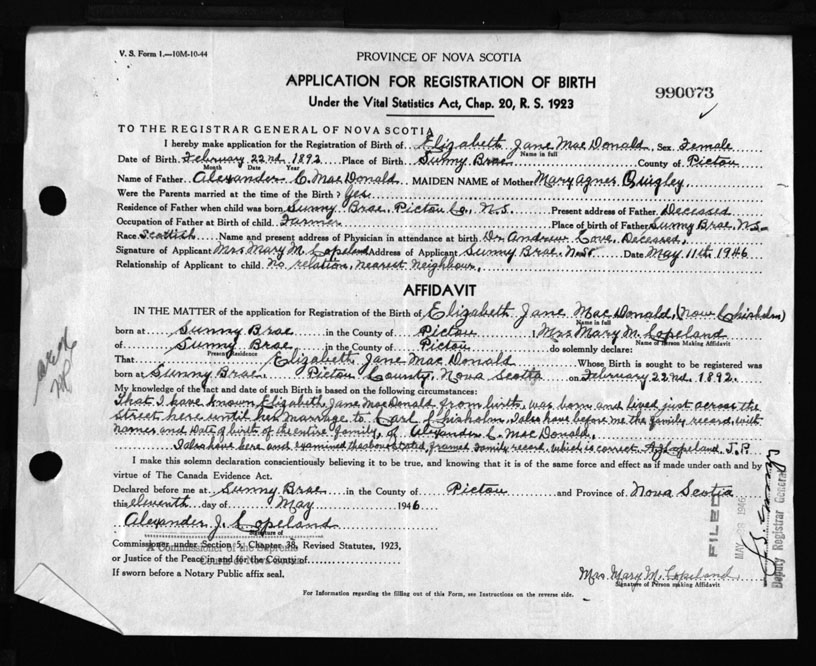 V. S. Form 1.—10M-10-44
PROVINCE OF NOVA SCOTIA
APPLICATION FOR REGISTRATION OF BIRTH
990073
Under the Vital Statistics Act, Chap. 20, R. S. 1923
TO THE REGISTRAR GENERAL OF NOVA SCOTIA
I hereby make application for the Registration of Birth of Elizabeth Jane MacDonald Sex Female
Name in full
Date of Birth February 22nd 1892 Place of Birth Sunny Brae County of Pictou
Month Date Year
Name of Father Alexander C. MacDonald MAIDEN NAME of Mother Mary Agnes Quigley
Were the Parents married at the time of the Birth? Yes
Residence of Father when child was born Sunny Brae, Pictou Co., N.S. Present address of Father Deceased
Occupation of Father at Birth of child Farmer Place of birth of Father Sunny Brae N.S.
Race Scottish Name and present address of Physician in attendance at birth Dr. Andrew Love, Deceased.
Signature of Applicant Mrs Mary M. Copeland Address of Applicant Sunny Brae. N.S. Date May 11th 1946
Relationship of Applicant to child No relation, nearest neighbour.
AFFIDAVIT
IN THE MATTER of the application for Registration of the Birth of Elizabeth Jane MacDonald, (now Chisholm)
Name in full
born at Sunny Brae in the County of Pictou I Mrs Mary M. Copeland
Name of Person Making Affidavit
of Sunny Brae in the County of Pictou do solemnly declare:
Present Residence
That Elizabeth Jane MacDonald Whose Birth is sought to be registered was
born at Sunny Brae Pictou County, Nova Scotia on February 22nd 1892.
My knowledge of the fact and date of such Birth is based on the following circumstances:
That I have known Elizabeth Jane MacDonald from birth, was born and lived just across the
street here until her marriage to Earl Chisholm. I also have before me the family record, with
names and date of birth of the entire family, of Alexander C. MacDonald.
I also have here and examined the above framed family record, which is correct. A J Copeland J.P.
I make this solemn declaration conscientiously believing it to be true, and knowing that it is of the same force and effect as if made under oath and by
virtue of The Canada Evidence Act.
Declared before me at Sunny Brae in the County of Pictou and Province of Nova Scotia
this eleventh day of May 1946
Alexander J. Copeland
Signature of
Commissioner under Section 5, Chapter 38, Revised Statutes, 1923,
A Commissioner of the Supreme
or Justice of the Peace in and for the County of
If sworn before a Notary Public affix seal.
Mrs. Mary M. Copeland
Signature of Person making Affidavit
FILED
MAY 28 1946
Deputy Registrar General
For Information regarding the filling out of this Form, see Instructions on the reverse side.